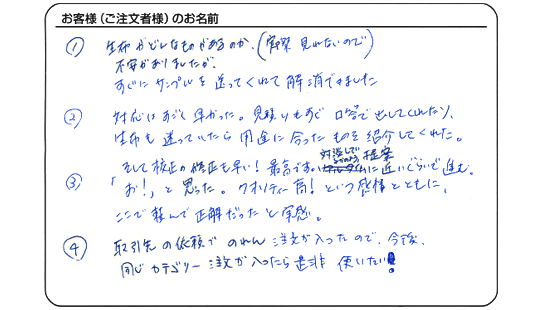 お客様(ご注文者様)のお名前
① 生布がどんなものがあるのか、(実際見れないので)
不安がありましたが、
すぐにサンプルを送ってくれて解消できました
② 対応はすごく早かった。見積りもすぐ口答で出してくれたり、
生布も迷っていたら用途に合ったものを紹介してくれた。
そして校正の修正も早い!最高です。
対談して
提案
に近いぐらいで進む。
③ 「お!」と思った。クオリティー高!という感情とともに、
ここで頼んで正解だったと実感。
④ 取引先の依頼でのれん注文が入ったので、今後、
同じカテゴリー注文が入ったら是非使いたい!